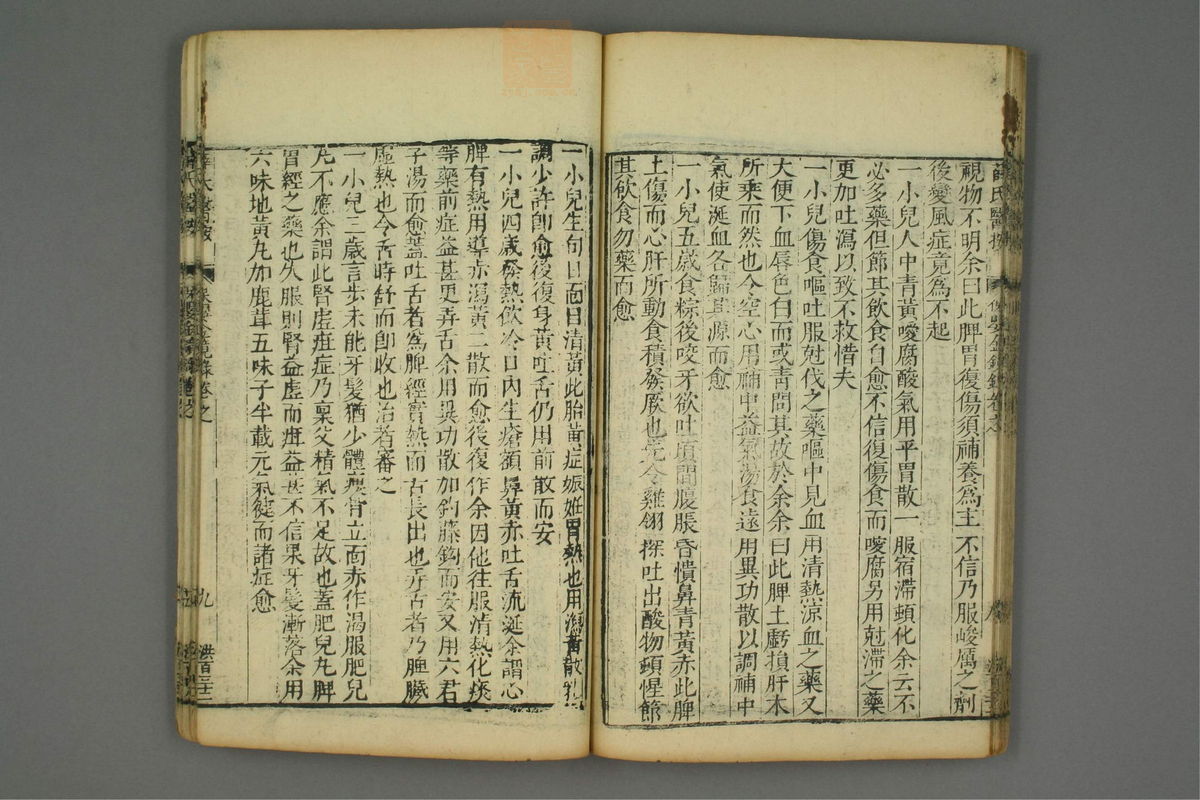 視物不明余曰此脾胃復傷須補養爲主不信乃服峻厲之劑
後變風症竟爲不起
一小兒人中青黃噯腐酸氣用平胃散一服宿滯頓化余云不
必多藥但節其飲食自愈不信復傷食而噯腐另用尅滯之藥
更加吐瀉以致不救惜夫
一小兒傷食嘔吐服尅伐之藥嘔中見血用清熱涼血之藥又
大便下血唇色白而或青問其故於余余曰此脾土虧損肝木
所乘而然也今空心用補中益氣湯食遠用異功散以調補中
氣使涎血各歸其源而愈
一小兒五歲食粽後咬牙欲吐頃間腹脹昏憒鼻青黃赤此脾
土傷而心肝所動食積發厥也令雞翎探吐出酸物頓惺節
其飲食勿藥而愈
薛氏醫按
一小兒生旬日面目清黃此胎黃症娠姙胃熱也用瀉黃散乳
調少許卽愈後復身黃吐舌仍用前散而安
一小兒四歲發熱飲冷口內生瘡額鼻黃赤吐舌流涎余謂心
脾有熱用導赤瀉黃二散而愈後復作余因他往服清熱化痰
等藥前症益甚更弄舌余用異功散加鈎藤鈎而安又用六君
子湯而愈蓋吐舌者爲脾經實熱而舌長出也弄舌者乃脾臟
虛熱也令舌時舒而卽收也治者審之
一小兒三歲言步未能牙髮猶少體瘦骨立面赤作渴服肥兒
丸不應余謂此腎虛疳症乃稟父精氣不足故也蓋肥兒丸脾
胃經之藥也久服則腎益虛而疳益甚不信果牙髮漸落余用
六味地黃丸加鹿茸五味子半載元氣健而諸症愈
九